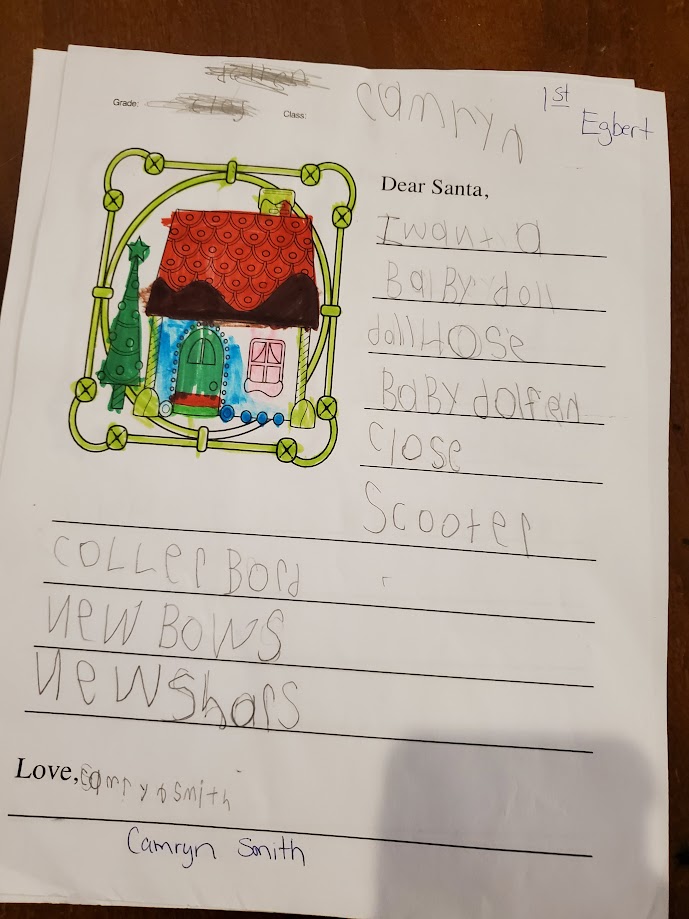 Grade:
Class:
camryn
1st
Egbert
Dear Santa,
I want a
BaBy doll
dollHOSe
BaBy dolfen
close
Scooter
coLLer Bord
new BOWS
new Shors
Love, Camryn Smith
Camryn Smith